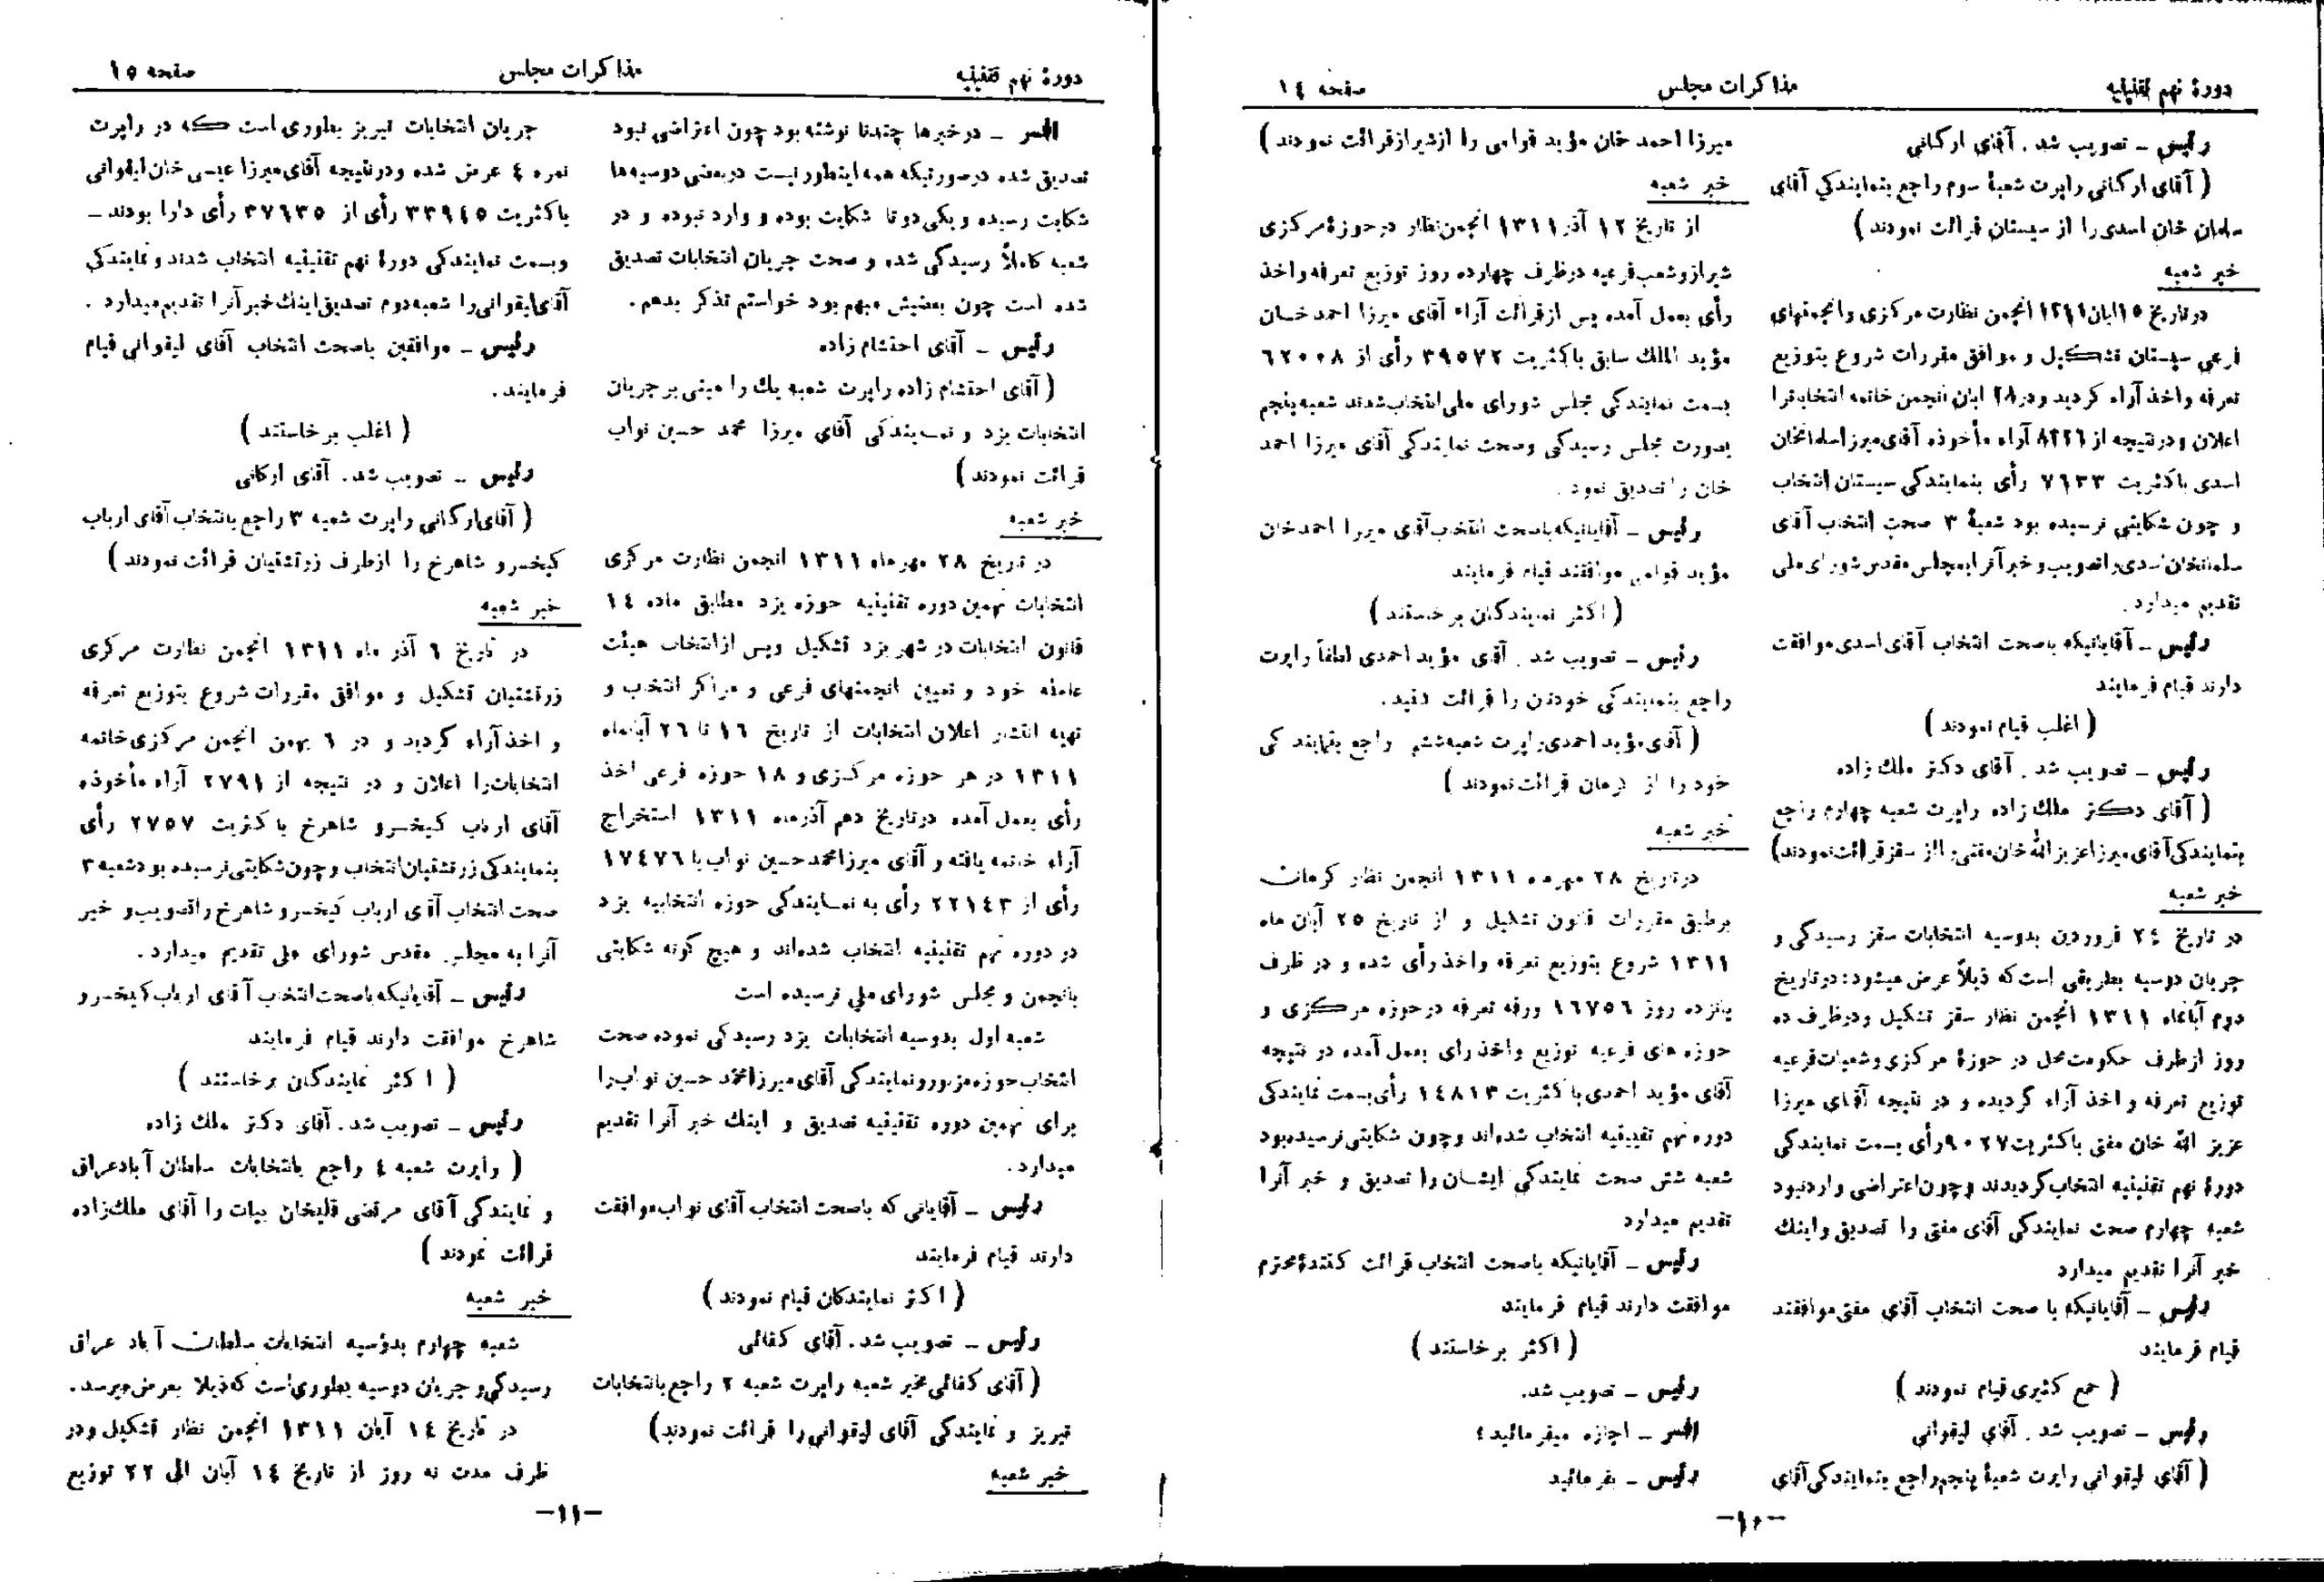 دورهٔ نهم تقنینیه
مذاکرات مجلس
صفحه ۱٤
رئیس ـ تصویب شد . آقای ارکانی
( آقای ارکانی راپرت شعبهٔ سوم راجع بنمایندگی آقای
سلمان خان اسدی را از سیستان قرائت نمودند )
خبر شعبه
در تاریخ ۱۵ ابان ۱۳۱۱ انجمن نظارت مرکزی و انجمنهای
فرعی سیستان تشکیل و موافق مقررات شروع بتوزیع
تعرفه و اخذ آراء گردید و در ۲۸ ابان انجمن خاتمه انتخابات را
اعلان و در نتیجه از ۸۲۲٦ آراء مأخوذه آقای میرزا سلمانخان
اسدی باکثریت ۷٦۳۳ رأی بنمایندگی سیستان انتخاب
و چون شکایتی نرسیده بود شعبهٔ ۳ صحت انتخاب آقای
سلمانخان اسدی را تصویب و خبر آنرا بمجلس مقدس شورای ملی
تقدیم میدارد .
رئیس ـ آقایانیکه باصحت انتخاب آقای اسدی موافقت
دارند قیام فرمایند
( اغلب قیام نمودند )
رئیس ـ تصویب شد . آقای دکتر ملك زاده
( آقای دکتر ملك زاده راپرت شعبه چهارم راجع
بنمایندگی آقای میرزا عزیز الله خان مفتی را از سقز قرائت نمودند )
خبر شعبه
در تاریخ ۲٤ فروردین بدوسیه انتخابات سقز رسیدگی و
جریان دوسیه بطریقی است که ذیلاً عرض میشود : در تاریخ
دوم آبانماه ۱۳۱۱ انجمن نظار سقز تشکیل و درظرف ده
روز از طرف حکومت محل در حوزهٔ مرکزی و شعبات فرعیه
توزیع تعرفه و اخذ آراء گردیده و در نتیجه آقای میرزا
عزیز الله خان مفتی باکثریت ۹۰۲۷ رأی بسمت نمایندگی
دورهٔ نهم تقنینیه انتخاب گردیدند و چون اعتراضی وارد نبود
شعبه چهارم صحت نمایندگی آقای مفتی را تصدیق و اینك
خبر آنرا تقدیم میدارد
رئیس ـ آقایانیکه با صحت انتخاب آقای مفتی موافقند
قیام فرمایند
( جمع کثیری قیام نمودند )
رئیس ـ تصویب شد . آقای لیقوانی
( آقای لیقوانی راپرت شعبهٔ پنجم راجع بنمایندگی آقای
میرزا احمد خان مؤید قوامی را از شیراز قرائت نمودند )
خبر شعبه
از تاریخ ۱۲ آذر ۱۳۱۱ انجمن نظار در حوزهٔ مرکزی
شیراز و شعب فرعیه درظرف چهارده روز توزیع تعرفه و اخذ
رأی بعمل آمده پس از قرائت آراء آقای میرزا احمد خان
مؤید الملك سابق باکثریت ۳۹۵۷۲ رأی از ٦۲۰۰۸
بسمت نمایندگی مجلس شورای ملی انتخاب شدند شعبه پنجم
بصورت مجلس رسیدگی وصحت نمایندگی آقای میرزا احمد
خان را تصدیق نمود .
رئیس ـ آقایانیکه باصحت انتخاب آقای میرزا احمد خان
مؤید قوامی موافقند قیام فرمایند
( اکثر نمایندگان برخاستند )
رئیس ـ تصویب شد . آقای مؤید احمدی لطفاً راپرت
راجع بنمایندگی خودتان را قرائت کنید .
( آقای مؤید احمدی راپرت شعبه ششم راجع بنمایندگی
خود را از کرمان قرائت نمودند )
خبر شعبه
درتاریخ ۲۸ مهرماه ۱۳۱۱ انجمن نظار کرمان
برطبق مقررات قانون تشکیل و از تاریخ ۲۵ آبان ماه
۱۳۱۱ شروع بتوزیع تعرفه و اخذ رأی شده و در ظرف
پانزده روز ۱٦۷۵٦ ورقه تعرفه در حوزه مرکزی و
حوزه های فرعیه توزیع واخذ رای بعمل آمده در نتیجه
آقای مؤید احمدی با کثریت ۱٤۸۱۳ رأی بسمت نمایندگی
دوره نهم تقنینیه انتخاب شده‌اند و چون شکایتی نرسیده بود
شعبه شش صحت نمایندگی ایشان را تصدیق و خبر آنرا
تقدیم میدارد
رئیس ـ آقایانیکه باصحت انتخاب قرائت کنندهٔ محترم
موافقت دارند قیام فرمایند
( اکثر برخاستند )
رئیس ـ تصویب شد.
افسر ـ اجازه میفرمائید؟
رئیس ـ بفرمائید
-۱۰-
دورهٔ نهم تقنینیه
مذاکرات مجلس
صفحه ۱۵
افسر ـ در خبرها چندتا نوشته بود چون اعتراضی نبود
تصدیق شده در صورتیکه همه اینطور نیست در بعضی دوسیه‌ها
شکایت رسیده و یکی دو تا شکایت بوده و وارد نبوده و در
شعبه کاملاً رسیدگی شده و صحت جریان انتخابات تصدیق
شده است چون بعضیش مبهم بود خواستم تذکر بدهم .
رئیس ـ آقای احتشام زاده
( آقای احتشام زاده راپرت شعبه یك را مبنی بر جریان
انتخابات یزد و نمایندگی آقای میرزا محمد حسین نواب
قرائت نمودند )
خبر شعبه
در تاریخ ۲۸ مهر ماه ۱۳۱۱ انجمن نظارت مرکزی
انتخابات نهمین دوره تقنینیه حوزه یزد مطابق ماده ۱٤
قانون انتخابات در شهر یزد تشکیل وپس از انتخاب هیئت
عامله خود و تعیین انجمنهای فرعی و مراکز انتخاب و
تهیه انتشار اعلان انتخابات از تاریخ ۱٦ تا ۲٦ آبانماه
۱۳۱۱ در هر حوزه مرکزی و ۱۸ حوزه فرعی اخذ
رأی بعمل آمده درتاریخ دهم آذرماه ۱۳۱۱ استخراج
آراء خاتمه یافته و آقای میرزا محمد حسین نواب با ۱۷٤۷٦
رأی از ۲۲۱٤۳ رأی به نمایندگی حوزه انتخابیه یزد
در دوره نهم تقنینیه انتخاب شده‌اند و هیچ گونه شکایتی
بانجمن و مجلس شورای ملی نرسیده است
شعبه اول بدوسیه انتخابات یزد رسیدگی نموده صحت
انتخاب حوزه مزبور و نمایندگی آقای میرزا محمد حسین نواب را
برای نهمین دوره تقنینیه تصدیق و اینك خبر آنرا تقدیم
میدارد.
رئیس ـ آقایانی که باصحت انتخاب آقای نواب موافقت
دارند قیام فرمایند
( اکثر نمایندگان قیام نمودند )
رئیس ـ تصویب شد. آقای کفائی
( آقای کفائی مخبر شعبه راپرت شعبه ۲ راجع بانتخابات
تبریز و نمایندگی آقای لیقوانی را قرائت نمودند)
خبر شعبه
جریان انتخابات تبریز بطوری است که در راپرت
نمره ٤ عرض شده و درنتیجه آقای میرزا عیسی خان لیقوانی
باکثریت ۳۳۹٤۵ رأی از ۳۷٦۳۵ رأی دارا بودند ـ
وبسمت نمایندگی دورهٔ نهم تقنینیه انتخاب شدند و نمایندگی
آقای لیقوانی را شعبه دوم تصدیق اینك خبر آنرا تقدیم میدارد .
رئیس ـ موافقین باصحت انتخاب آقای لیقوانی قیام
فرمایند.
( اغلب برخاستند )
رئیس ـ تصویب شد. آقای ارکانی
( آقای ارکانی راپرت شعبه ۳ راجع بانتخاب آقای ارباب
کیخسرو شاهرخ را ازطرف زرتشتیان قرائت نمودند )
خبر شعبه
در تاریخ ٦ آذر ماه ۱۳۱۱ انجمن نظارت مرکزی
زرتشتیان تشکیل و موافق مقررات شروع بتوزیع تعرفه
و اخذ آراء گردید و در ٦ بهمن انجمن مرکزی خاتمه
انتخابات را اعلان و در نتیجه از ۲۷۹۱ آراء مأخوذه
آقای ارباب کیخسرو شاهرخ باکثریت ۲۷۵۷ رأی
بنمایندگی زرتشتیان انتخاب و چون شکایتی نرسیده بود شعبه ۳
صحت انتخاب آقای ارباب کیخسرو شاهرخ را تصویب و خبر
آنرا به مجلس مقدس شورای ملی تقدیم میدارد .
رئیس ـ آقایانیکه باصحت انتخاب آقای ارباب کیخسرو
شاهرخ موافقت دارند قیام فرمایند
( اکثر نمایندگان برخاستند )
رئیس ـ تصویب شد. آقای دکتر ملك زاده
( راپرت شعبه ٤ راجع بانتخابات سلطان آباد عراق
و نمایندگی آقای مرتضی قلیخان بیات را آقای ملك‌زاده
قرائت نمودند )
خبر شعبه
شعبه چهارم بدوسیه انتخابات سلطان آباد عراق
رسیدگی و جریان دوسیه بطوری است که ذیلا بعرض میرسد.
در تاریخ ۱٤ آبان ۱۳۱۱ انجمن نظار تشکیل و در
ظرف مدت نه روز از تاریخ ۱٤ آبان الی ۲۲ توزیع
-۱۱-